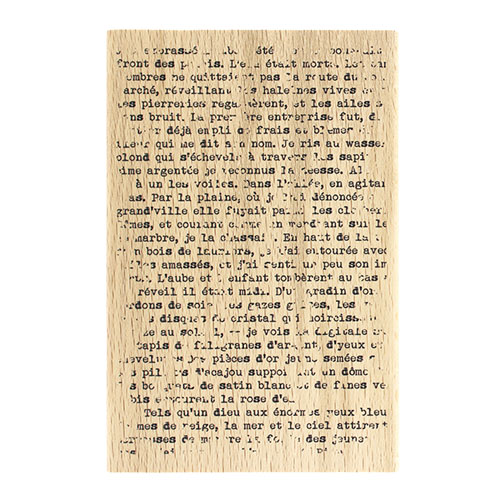 front des L'eau était morte. Les
ombres ne quittaient pas la route du
arché, réveillant les haleines vives
es pierreries regardèrent, et les ailes s
ns bruit. La première entreprise fut, d
déjà empli de frais et blêmes
fleur qui me dit son nom. Je ris au wasser
blond qui s'échevela à travers les sapi
ime argentée je reconnus la déesse. Al
à un les voiles. Dans l'allée, en agitan
as. Par la plaine, où je l'ai dénoncée
grand'ville elle fuyait parmi les clochers
ômes, et courant comme un mendiant sur le
marbre, je la chassais. En haut de la
n bois de lauriers, je l'ai entourée avec
iles amassés, et j'ai senti un peu son im
L'aube et l'enfant tombèrent au bas
réveil il était midi. D'un gradin d'or
rdons de soie, les gazes grises, les
disques de cristal qui noircissen
ze au soleil, — je vois la digitale
tapis de filigranes d'argent, d'yeux et
evelures Des pièces d'or jaune semées
piliers d'acajou supportant un dôme
bouquets de satin blanc et de fines ve
bis entourent la rose d'e
Tels qu'un dieu aux énormes yeux bleu
mes de neige, la mer et le ciel attirent
de marbre la foule des jeunes